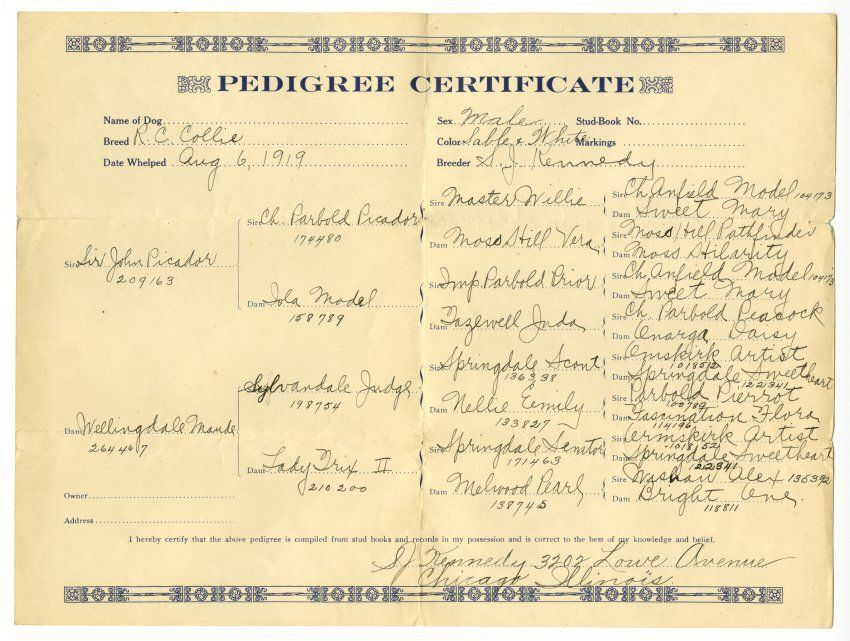 PEDIGREE CERTIFICATE
Name of Dog
Sex Male Stud-Book No.
Breed R. C. Collie
Color Sable & White Markings
Date Whelped Aug 6, 1919
Breeder S. J. Kennedy
Sire Sir John Picador
209163
Sire Ch. Parbold Picador
174480
Dam Iola Model
158789
Sire Master Willie
Dam Moss Hill Vera
Sire Imp. Parbold Prior
Dam Tazewell Juda
Sire Ch. Anfield Model 104173
Dam Sweet Mary
Sire Moss Hill Pathfinder
Dam Moss Hilarity
Sire Ch. Anfield Model 104173
Dam Sweet Mary
Sire Ch. Parbold Peacock
Dam Onarga Daisy
Dam Wellingdale Maude
264467
Sire Sylvandale Judge
198754
Dam Lady Trix II
210200
Sire Springdale Scout
136338
Dam Nellie Emily
133827
Sire Springdale Senitor
171463
Dam Melwood Pearl
138745
Sire Ormskirk Artist
101852
Dam Springdale Sweetheart
122341
Sire Parbold Pierrot
100789
Dam Fascination Flora
114196
Sire ermskirk Artist
101852
Dam Springdale Sweetheart
122341
Sire Alex 135392
Dam Bright One
118811
Owner
Address
I hereby certify that the above pedigree is compiled from stud books and records in my possession and is correct to the best of my knowledge and belief.
SJ Kennedy 3202 Lowe Avenue
Chicago Illinois.